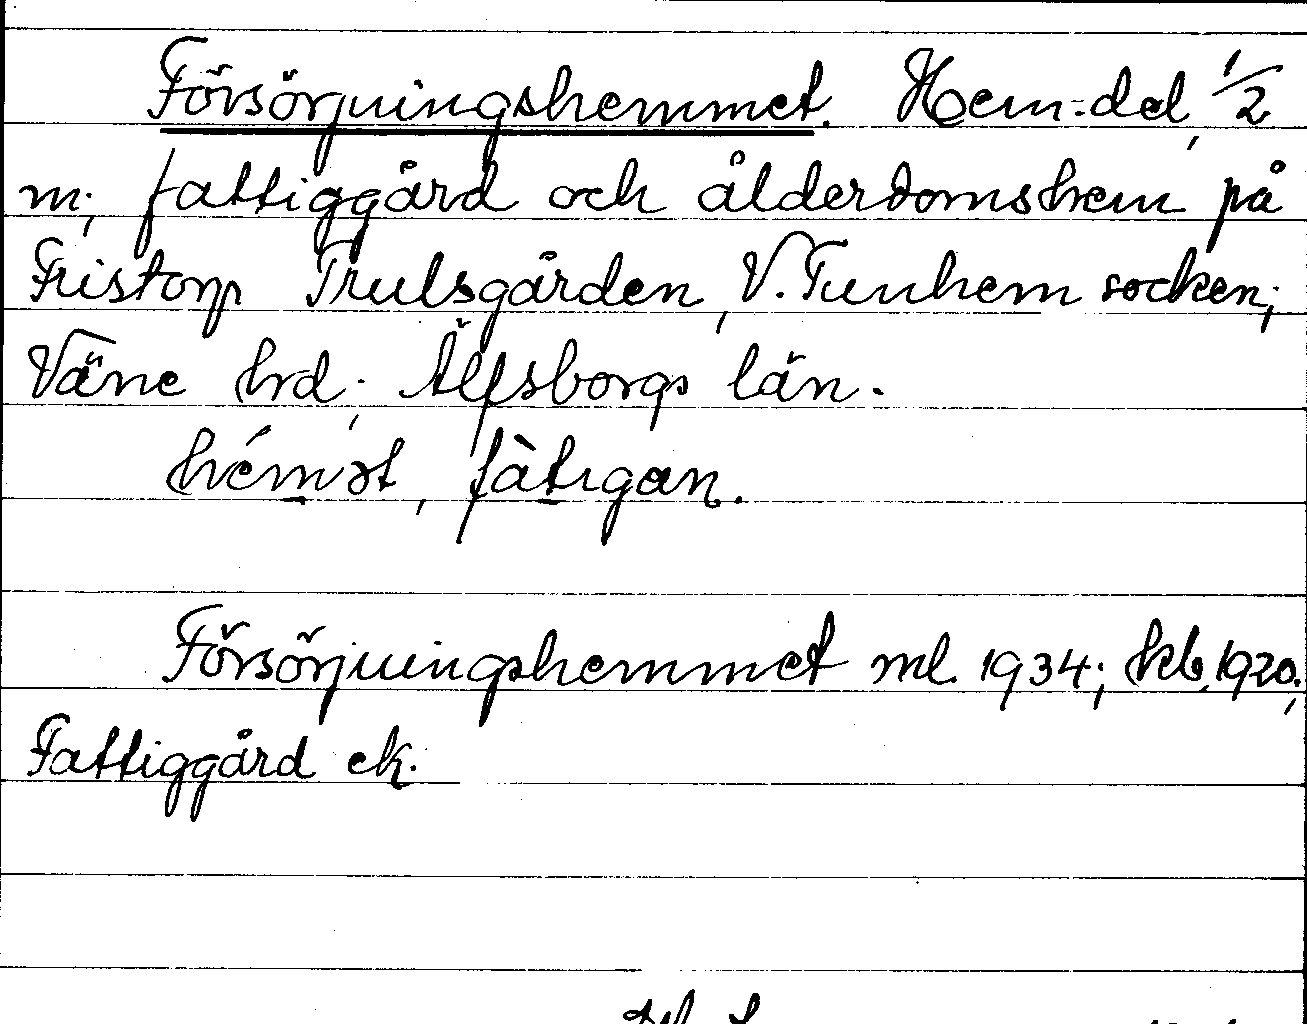 Försörjningshemmet. Hem.-del, 1/2
m; fattiggård och ålderdomshem på
Fristorp Trulsgården, V. Tunhem socken;
Väne hrd; Älfsborgs län.
hémət, fàtɩgan.
Försörjningshemmet ml. 1934; hkb. 1920;
Fattiggård ek.